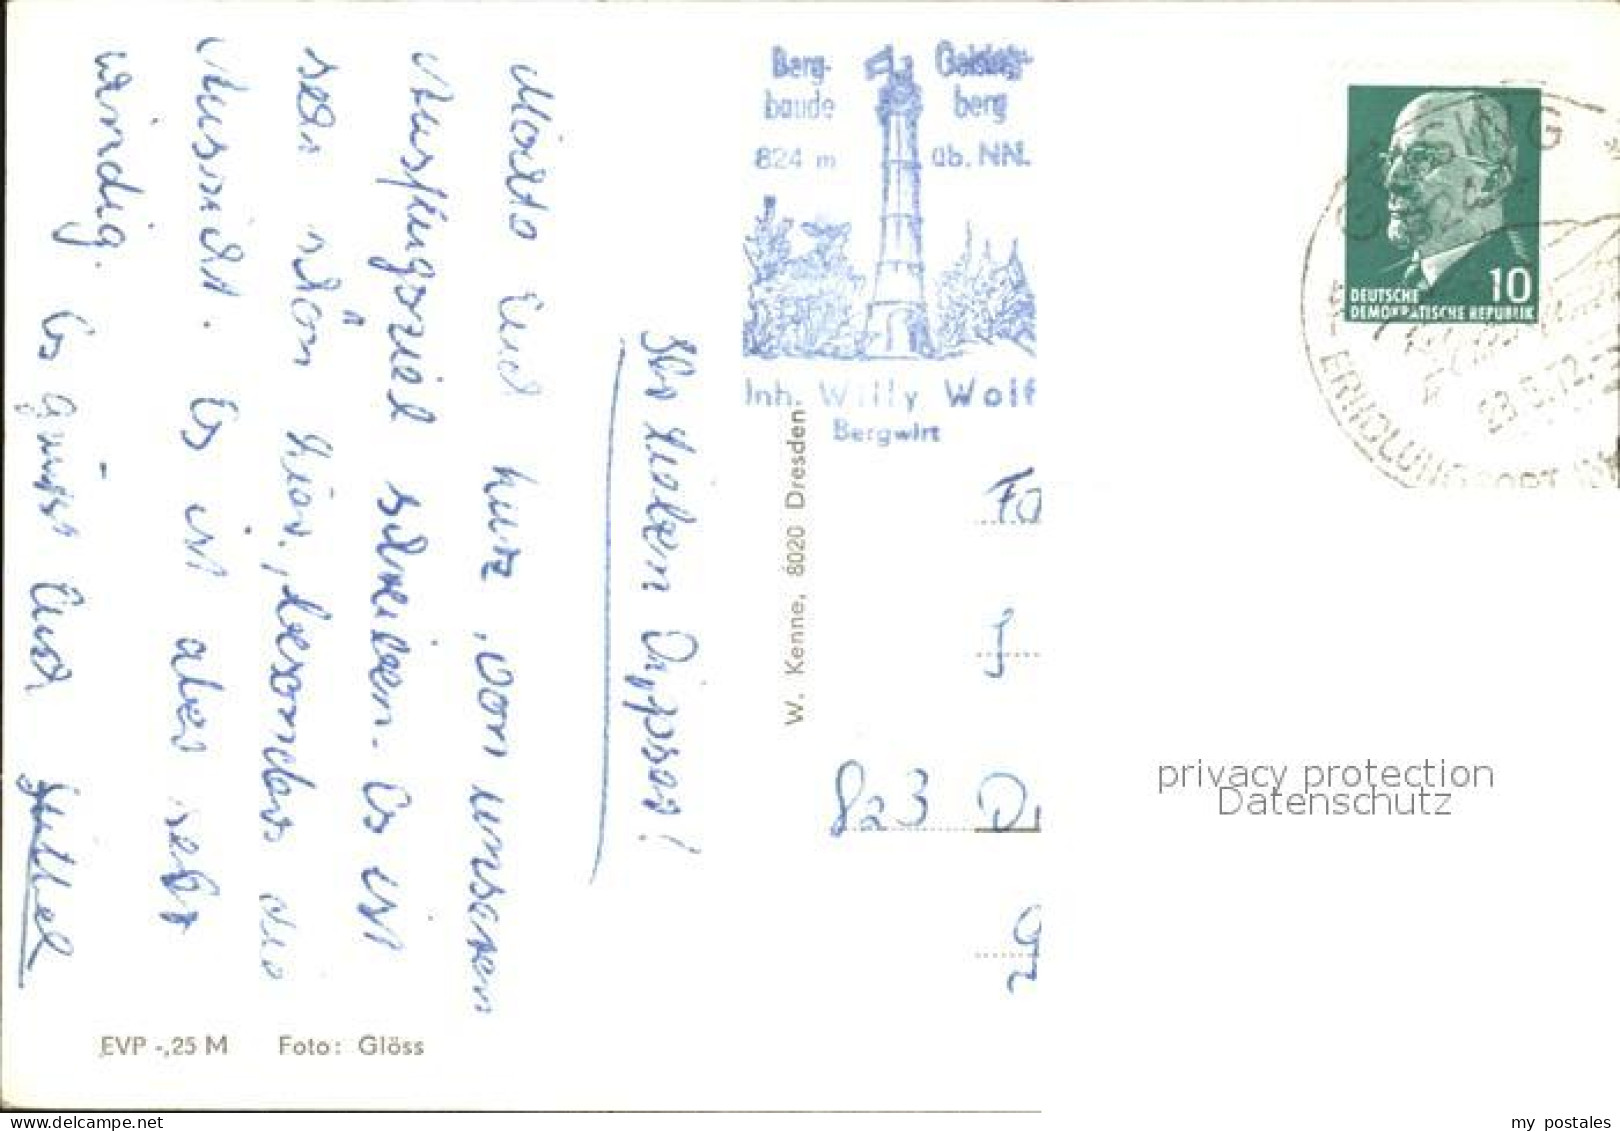 Ihr lieben Dippser!
Möchte Euch kurz, von unserem
Ausflugsziel schreiben. Es ist
sehr schön hier, besonders die
Aussicht. Es ist aber sehr
windig. Es grüßt Euch
Berg-
baude
824 m
Geising-
berg
üb. NN.
Inh. Willy Wolf
Bergwirt
W. Kenne, 8020 Dresden
EVP -,25 M Foto: Glöss
10
DEUTSCHE
DEMOKRATISCHE REPUBLIK
GEISING
ERHOLUNGSORT
5.72
Fa
823 Di
privacy protection
Datenschutz
my postales